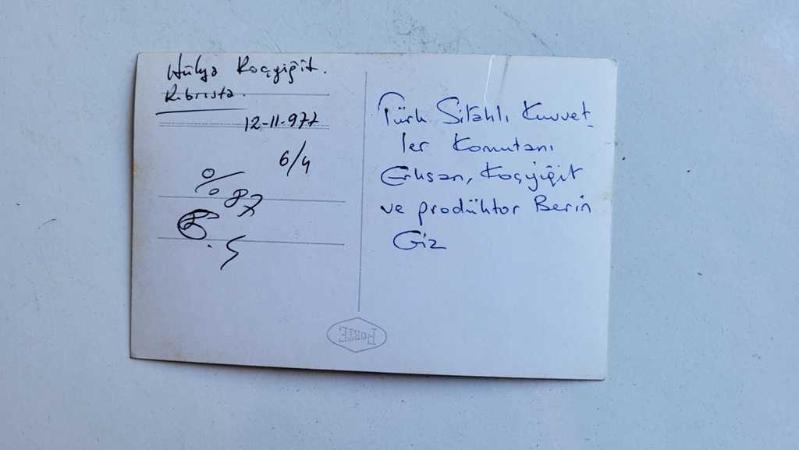 Hülya Koçyiğit.
Kıbrısta.
12-11-977
6/4
% 87
5
Türk Silahlı Kuvvet-
ler Komutanı
Erhsan, Koçyiğit
ve prodüktor Berin
Giz
FORTE